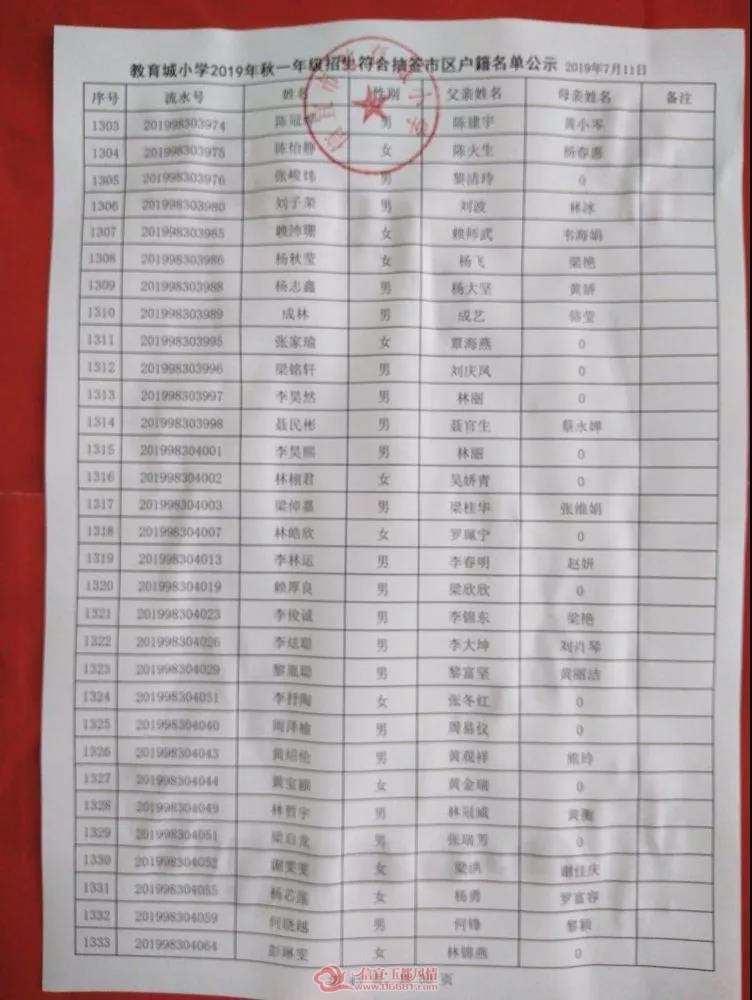 教育城小学2019年秋一年级招生符合抽签市区户籍名单公示 2019年7月11日
序号 流水号 姓名 性别 父亲姓名 母亲姓名 备注
1303 201998303974 陈冠 男 陈建宇 黄小琴
1304 201998303975 陈怡静 女 陈火生 杨春惠
1305 201998303976 张峻炜 男 黎洁玲 0
1306 201998303980 刘子荣 男 刘波 林冰
1307 201998303985 赖沛珊 女 赖师武 韦海娟
1308 201998303986 杨秋莹 女 杨飞 梁艳
1309 201998303988 杨志鑫 男 杨大坚 黄娇
1310 201998303989 成林 男 成艺 骆莹
1311 201998303995 张家瑜 女 覃海燕 0
1312 201998303996 梁铭轩 男 刘庆凤 0
1313 201998303997 李昊然 男 林丽 0
1314 201998303998 聂民彬 男 聂官生 蔡永婵
1315 201998304001 李昊熙 男 林丽 0
1316 201998304002 林栩君 女 吴娇青 0
1317 201998304003 梁倬嘉 男 梁桂华 张维娟
1318 201998304007 林皓欣 女 罗珮宁 0
1319 201998304013 李林运 男 李春明 赵妍
1320 201998304019 赖厚良 男 梁欣欣 0
1321 201998304023 李俊诚 男 李锦东 梁艳
1322 201998304026 李炫聪 男 李大坤 刘肖琴
1323 201998304029 黎胤聪 男 黎富坚 黄丽洁
1324 201998304031 李抒陶 女 张冬红 0
1325 201998304040 周泽榆 男 周易仪 0
1326 201998304043 黄绍伦 男 黄观祥 熊玲
1327 201998304044 黄宝颖 女 黄金瑞 0
1328 201998304049 林哲宇 男 林冠威 黄衡
1329 201998304051 梁启龙 男 张瑞芳 0
1330 201998304052 谢雯雯 女 梁洪 谢佳庆
1331 201998304055 杨芯莲 女 杨勇 罗富容
1332 201998304059 何晓越 男 何锋 黎颖
1333 201998304064 彭琳雯 女 林锦燕 0
信宜玉都风情
www.06681.com
页